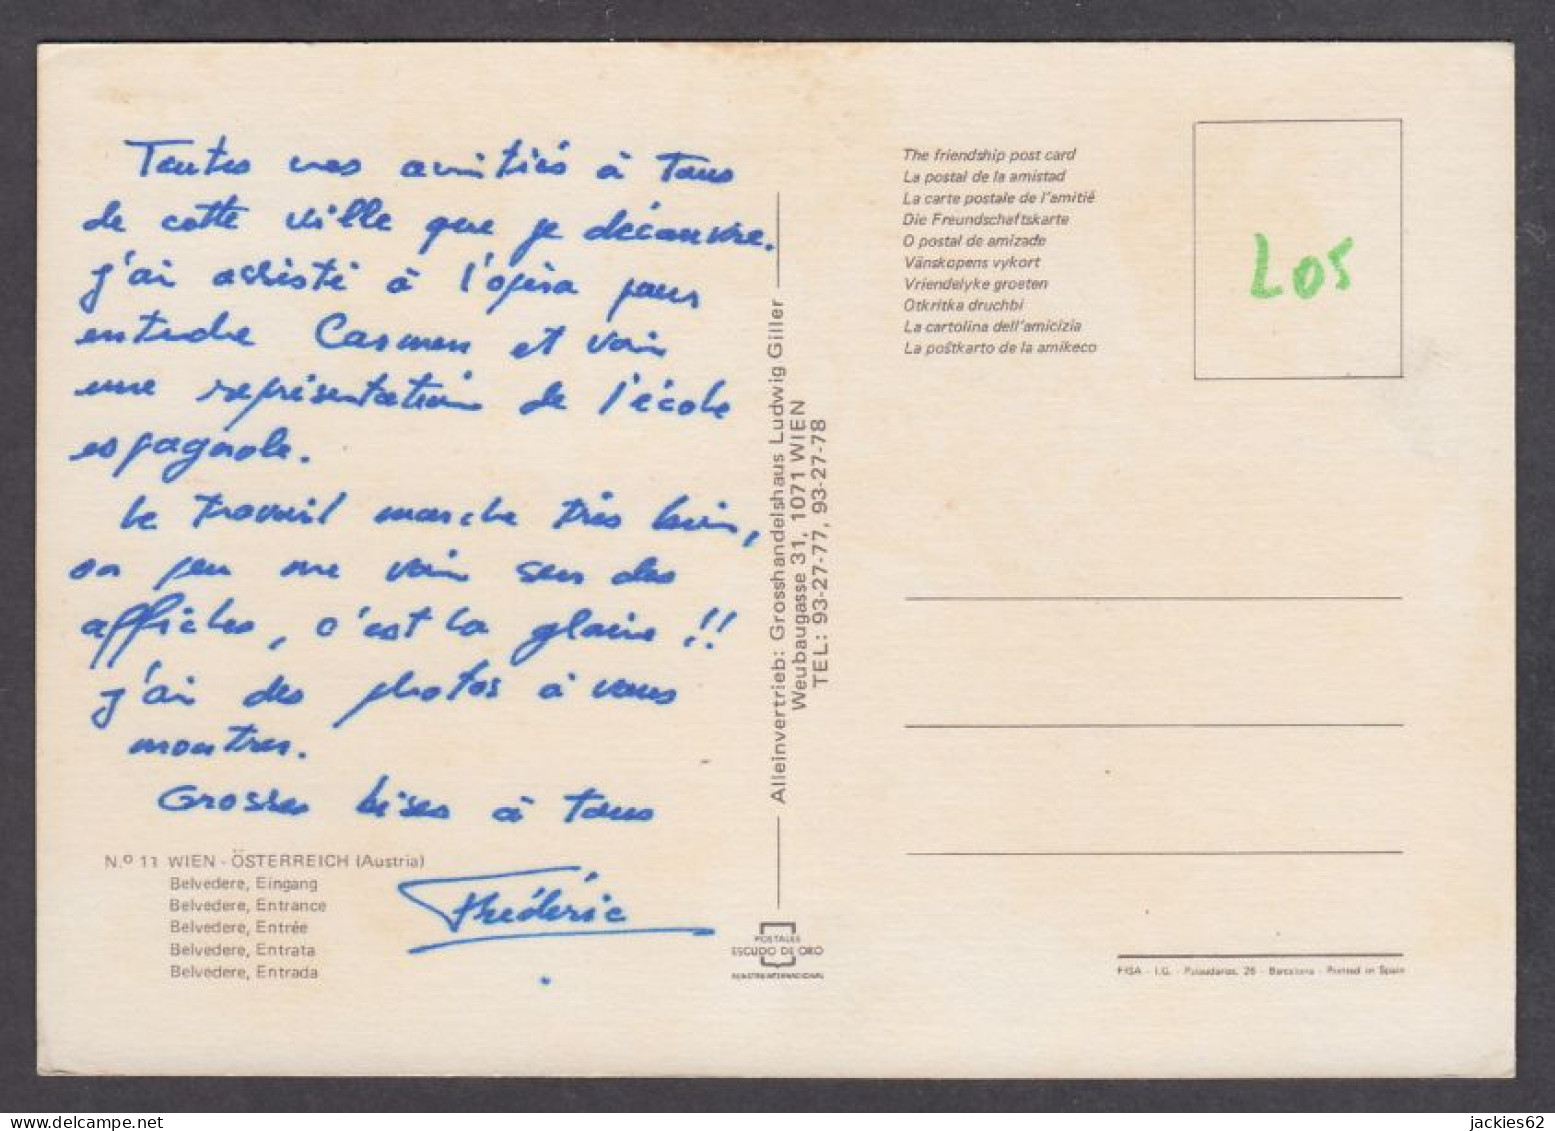 Toutes mes amitiés à tous
de cette ville que je découvre.
J'ai assisté à l'opéra pour
entendre Carmen et voir
une représentation de l'école
espagnole.
Le travail marche très bien,
on peu me voir sur des
affiches, c'est la gloire !!
J'ai des photos à vous
montrer.
Grosses bises à tous
Frédéric
N.º 11 WIEN - ÖSTERREICH (Austria)
Belvedere, Eingang
Belvedere, Entrance
Belvedere, Entrée
Belvedere, Entrata
Belvedere, Entrada
Alleinvertrieb: Grosshandelshaus Ludwig Giller
Weubaugasse 31, 1071 WIEN
TEL.: 93-27-77, 93-27-78
POSTALES
ESCUDO DE ORO
The friendship post card
La postal de la amistad
La carte postale de l'amitié
Die Freundschaftskarte
O postal de amizade
Vänskopens vykort
Vriendelyke groeten
Otkritka druchbi
La cartolina dell'amicizia
La poŝtkarto de la amikeco
L05
FISA - I.G. - Palaudarias, 26 - Barcelona - Printed in Spain
jackies62